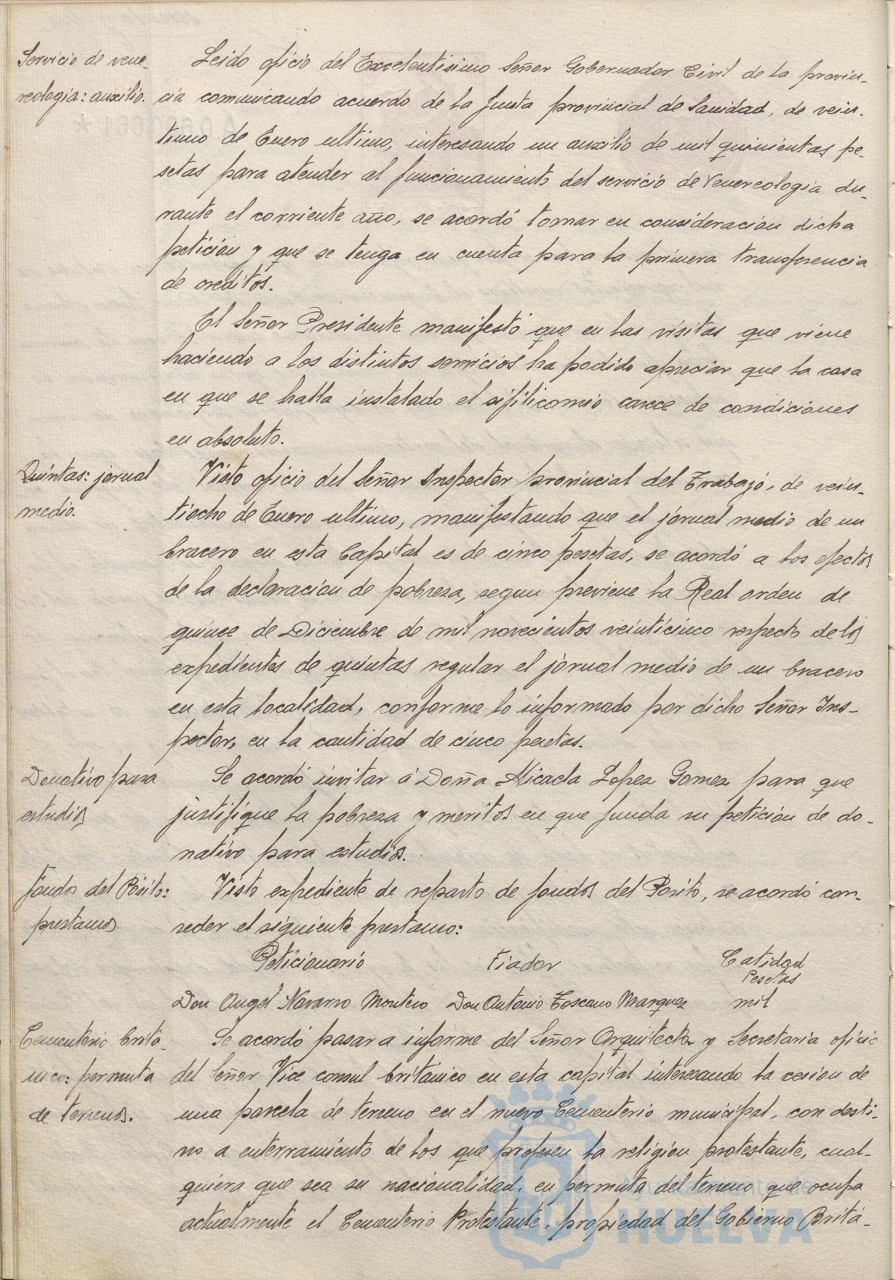 Servicio de vene-
reologia: auxilio.
Leido oficio del Excelentisimo Señor Gobernador Civil de la provin-
cia comunicando acuerdo de la Junta provincial de Sanidad, de vein-
tiuno de Enero ultimo, interesando un auxilio de mil quinientas pe-
setas para atender al funcionamiento del servicio de Venereologia du-
rante el corriente año, se acordó tomar en consideracion dicha
petición y que se tenga en cuenta para la primera transferencia
de creditos.
El Señor Presidente manifestó que en las visitas que viene
haciendo a los distintos servicios ha podido apreciar que la casa
en que se halla instalado el sifilicomio carece de condiciones
en absoluto.
Quintas: jornal
medio.
Visto oficio del Señor Inspector provincial del Trabajo, de vein-
tiocho de Enero ultimo, manifestando que el jornal medio de un
bracero en esta Capital es de cinco pesetas, se acordó a los efectos
de la declaracion de pobreza, segun previene la Real orden de
quince de Diciembre de mil novecientos veinticinco respecto de los
expedientes de quintas regular el jornal medio de un bracero
en esta localidad, conforme lo informado por dicho Señor Ins-
pector, en la cantidad de cinco pesetas.
Donativo para
estudios
Se acordó invitar á Doña Micaela Lopez Gomez para que
justifique la pobreza y meritos en que funda su petición de do-
nativo para estudios.
Fondos del Pósito:
prestamos
Visto expediente de reparto de fondos del Posito, se acordó con-
ceder el siguiente prestamo:
Peticionario Fiador Catidad
Pesetas
Don Angel Navarro Montero Don Antonio Toscano Marquez mil
Cementerio britá-
nico: permuta
de terrenos.
Se acordó pasar a informe del Señor Arquitecto y Secretaria oficio
del Señor Vice consul britanico en esta capital interesando la cesion de
una parcela de terreno en el nuevo Cementerio municipal, con desti-
no a enterramiento de los que profesen la religión protestante, cual-
quiera que sea su nacionalidad, en permuta del terreno que ocupa
actualmente el Cementerio Protestante, propiedad del Gobierno Britá-
Ayuntamiento de
HUELVA